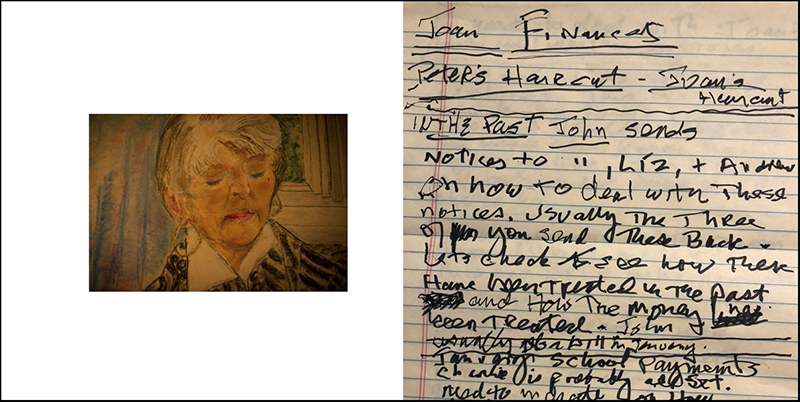 Joan Finances
Peter's Haircut - Joan's
Haircut
IN THE Past John sends
Notices to " , Liz, + Andrew
On how to deal with These
notices. Usually The Three
of you send These Back.
Lets check to see how These
Have been Treated in The past
and How The money has
been Treated. John
usually a bill in January.
school payments
Charlie is probably all set.
need to on How